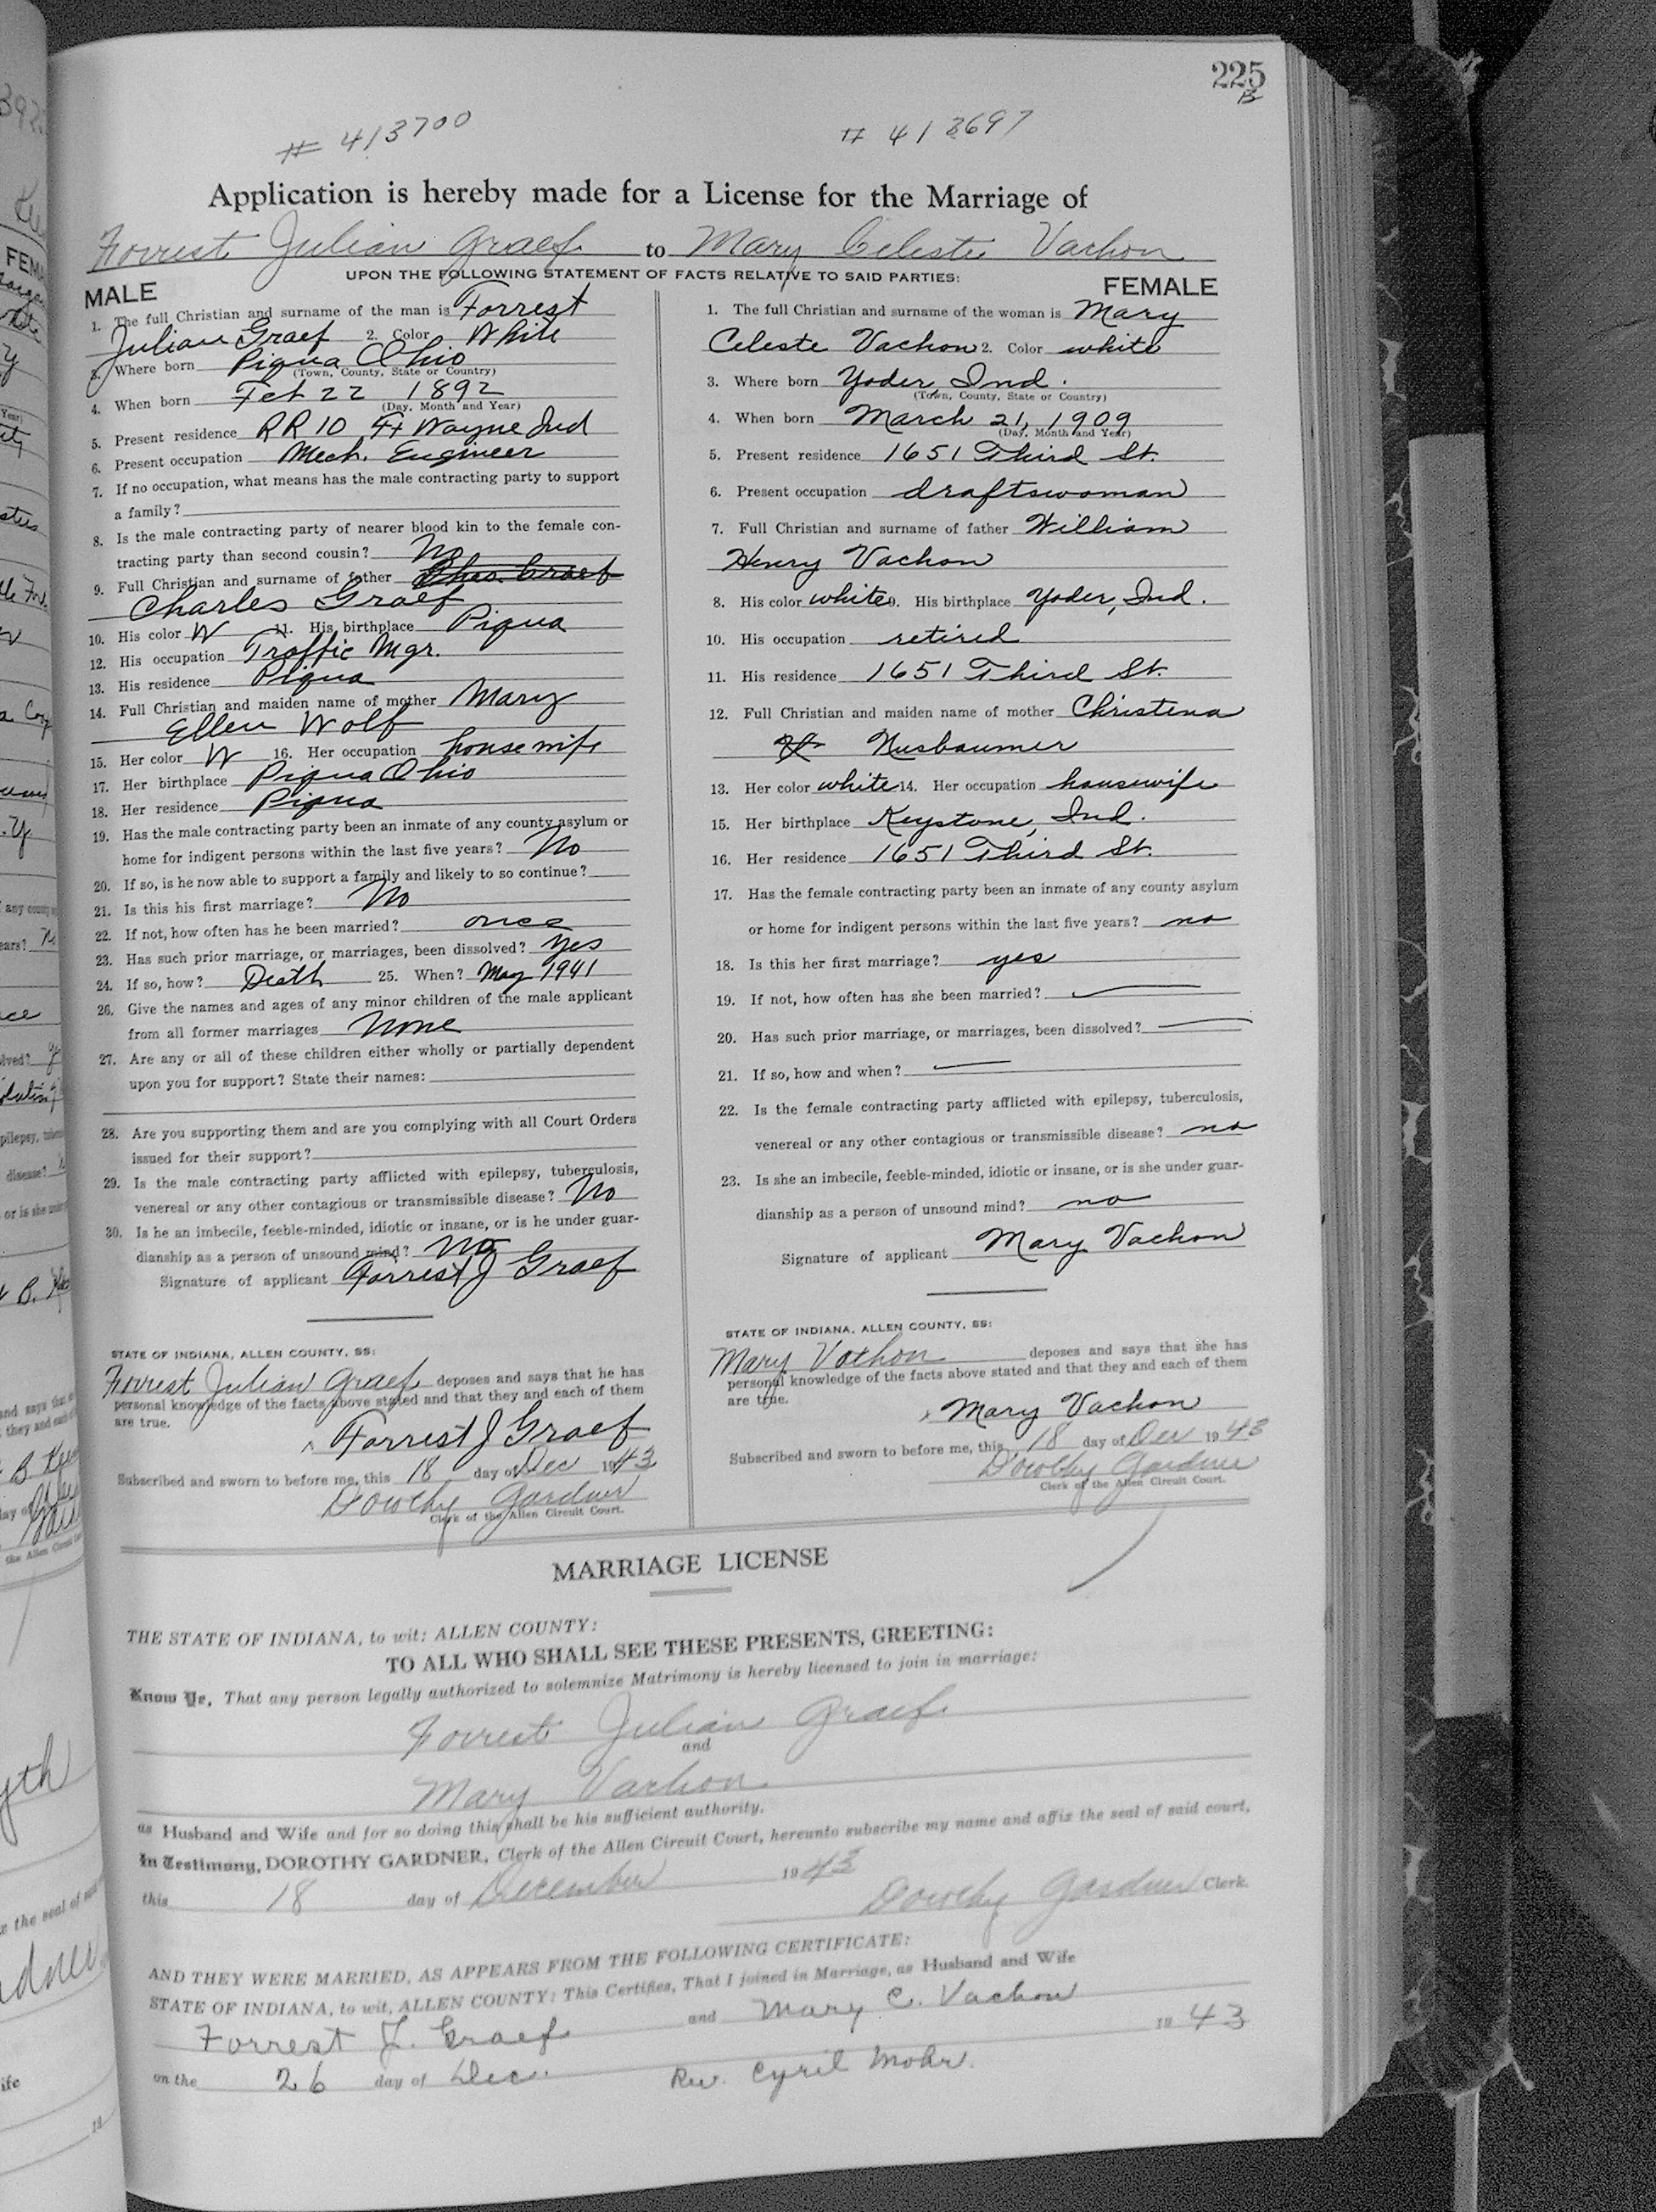 225
B
# 413700 # 413697
Application is hereby made for a License for the Marriage of
Forrest Julian Graef to Mary Celeste Vachon
UPON THE FOLLOWING STATEMENT OF FACTS RELATIVE TO SAID PARTIES:
MALE
1. The full Christian and surname of the man is Forrest
Julian Graef 2. Color White
3. Where born Piqua Ohio
(Town, County, State or Country)
4. When born Feb 22 1892
(Day, Month and Year)
5. Present residence RR 10 Ft Wayne Ind
6. Present occupation Mech. Engineer
7. If no occupation, what means has the male contracting party to support
a family?
8. Is the male contracting party of nearer blood kin to the female con-
tracting party than second cousin? No
9. Full Christian and surname of father Chas. Graef
Charles Graef
10. His color W 11. His birthplace Piqua
12. His occupation Traffic Mgr.
13. His residence Piqua
14. Full Christian and maiden name of mother Mary
Ellen Wolf
15. Her color W 16. Her occupation housewife
17. Her birthplace Piqua Ohio
18. Her residence Piqua
19. Has the male contracting party been an inmate of any county asylum or
home for indigent persons within the last five years? No
20. If so, is he now able to support a family and likely to so continue?
21. Is this his first marriage? No
22. If not, how often has he been married? once
23. Has such prior marriage, or marriages, been dissolved? Yes
24. If so, how? Death 25. When? May 1941
26. Give the names and ages of any minor children of the male applicant
from all former marriages None
27. Are any or all of these children either wholly or partially dependent
upon you for support? State their names:
28. Are you supporting them and are you complying with all Court Orders
issued for their support?
29. Is the male contracting party afflicted with epilepsy, tuberculosis,
venereal or any other contagious or transmissible disease? No
30. Is he an imbecile, feeble-minded, idiotic or insane, or is he under guar-
dianship as a person of unsound mind? No
Signature of applicant Forrest J Graef
STATE OF INDIANA, ALLEN COUNTY, SS:
Forrest Julian Graef deposes and says that he has
personal knowledge of the facts above stated and that they and each of them
are true.
Forrest J Graef
Subscribed and sworn to before me, this 18 day of Dec 1943
Dorothy Gardner
Clerk of the Allen Circuit Court.
FEMALE
1. The full Christian and surname of the woman is Mary
Celeste Vachon 2. Color white
3. Where born Yoder, Ind.
(Town, County, State or Country)
4. When born March 21, 1909
(Day, Month and Year)
5. Present residence 1651 Third St.
6. Present occupation draftswoman
7. Full Christian and surname of father William
Henry Vachon
8. His color white 9. His birthplace Yoder, Ind.
10. His occupation retired
11. His residence 1651 Third St.
12. Full Christian and maiden name of mother Christena
Nusbaumer
13. Her color white 14. Her occupation housewife
15. Her birthplace Keystone, Ind.
16. Her residence 1651 Third St.
17. Has the female contracting party been an inmate of any county asylum
or home for indigent persons within the last five years? no
18. Is this her first marriage? yes
19. If not, how often has she been married?
20. Has such prior marriage, or marriages, been dissolved?
21. If so, how and when?
22. Is the female contracting party afflicted with epilepsy, tuberculosis,
venereal or any other contagious or transmissible disease? no
23. Is she an imbecile, feeble-minded, idiotic or insane, or is she under guar-
dianship as a person of unsound mind? no
Signature of applicant Mary Vachon
STATE OF INDIANA, ALLEN COUNTY, SS:
Mary Vachon deposes and says that she has
personal knowledge of the facts above stated and that they and each of them
are true.
Mary Vachon
Subscribed and sworn to before me, this 18 day of Dec 1943
Dorothy Gardner
Clerk of the Allen Circuit Court.
MARRIAGE LICENSE
THE STATE OF INDIANA, to wit: ALLEN COUNTY:
TO ALL WHO SHALL SEE THESE PRESENTS, GREETING:
Know Ye, That any person legally authorized to solemnize Matrimony is hereby licensed to join in marriage:
Forrest Julian Graef
and
Mary Vachon
as Husband and Wife and for so doing this shall be his sufficient authority.
In Testimony, DOROTHY GARDNER, Clerk of the Allen Circuit Court, hereunto subscribe my name and affix the seal of said court,
this 18 day of December 1943
Dorothy Gardner Clerk.
AND THEY WERE MARRIED, AS APPEARS FROM THE FOLLOWING CERTIFICATE:
STATE OF INDIANA, to wit, ALLEN COUNTY: This Certifies, That I joined in Marriage, as Husband and Wife
Forrest J. Graef and Mary C. Vachon
on the 26 day of Dec. 1943
Rev. Cyril Mohr.